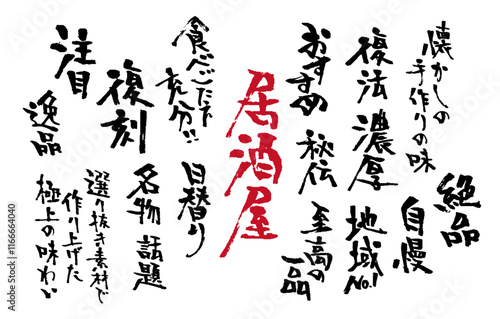 懐かしの
手作りの味
絶品
自慢
復法
濃厚
地域No.1
おすすめ
秘伝
至高の
一品
居酒屋
食べごたえ
充分!!
日替り
復刻
名物
話題
注目
逸品
選り抜き素材で
作り上げた
極上の味わい
Adobe Stock | #1166664040